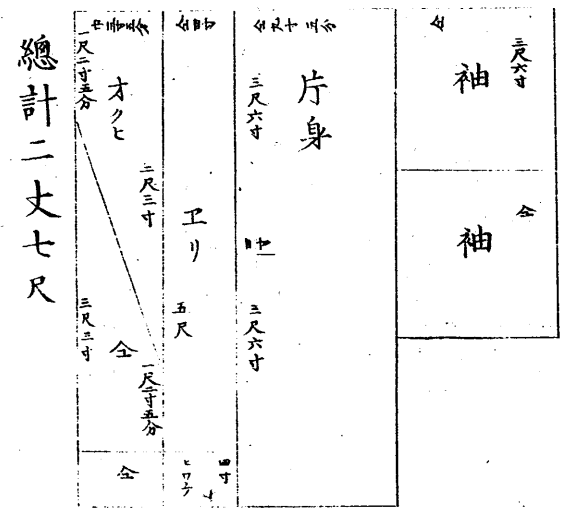 仝
三尺六寸
袖
仝
袖
仝九寸三分
片身
三尺六寸
三尺六寸
仝四寸
ヱリ
五尺
四寸
巾三寸五分
一尺二寸五分
オクヒ
二尺三寸
三尺三寸
仝
一尺二寸五分
仝
總計二丈七尺